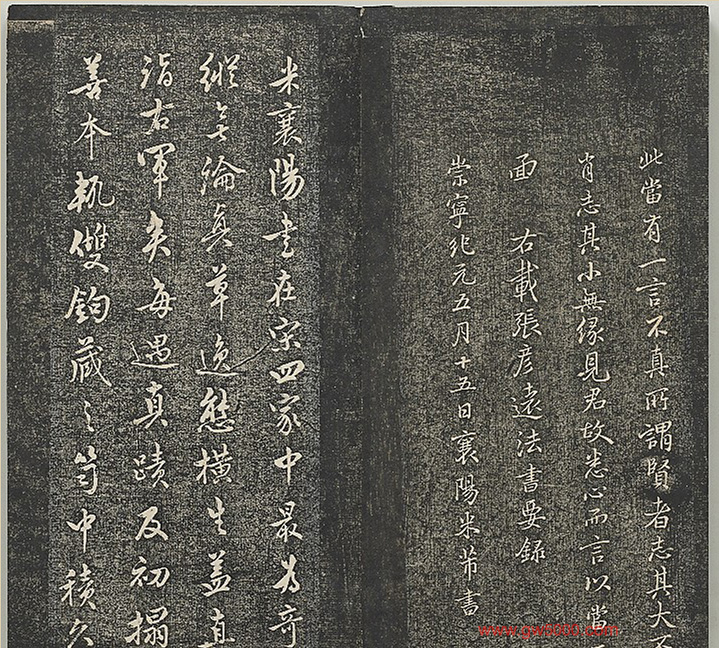 此當有一言不真所謂賢者志其大不
肖志其小無緣見君故悉心而言以當
面 右載張彥遠法書要錄
崇寧紀元五月十五日襄陽米芾書
米襄陽書在宋四家中最為奇
縱無論真草逸態橫生蓋直
詣右軍矣每遇真蹟及初搨
善本執雙鉤藏之笥中積久
www.gw5000.com